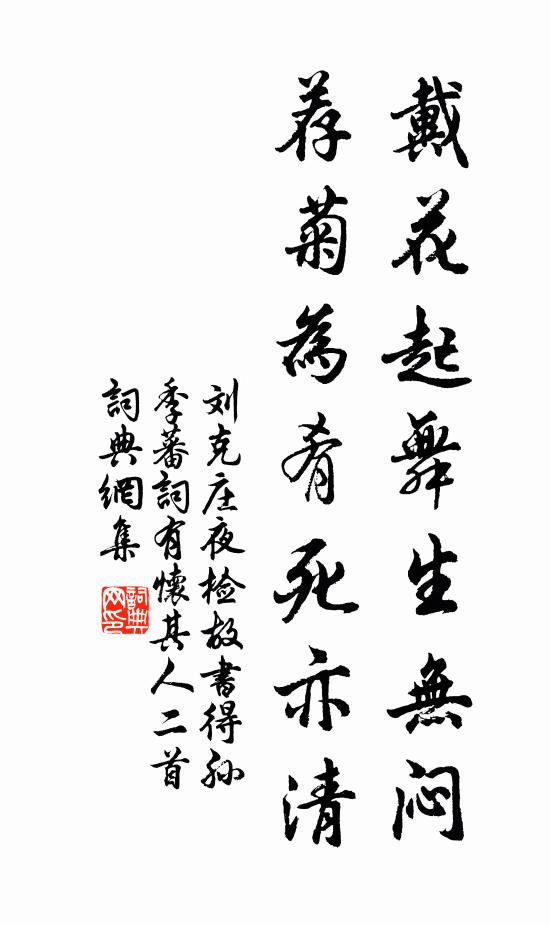 戴花起舞生無闷
荐菊為肴死亦清
刘克庄夜检故書得孙
季蕃詞有懷其人二首
詞典網集
詞典网印